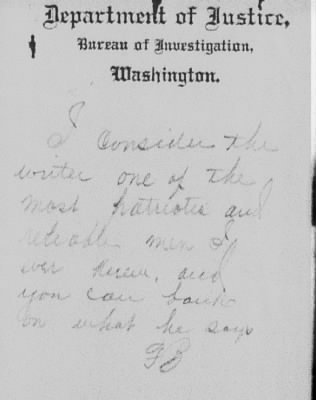 Department of Justice,
Bureau of Investigation,
Washington.
I consider the
writer one of the
most patriotic and
reliable men I
ever knew, and
you can bank
on what he says
FB